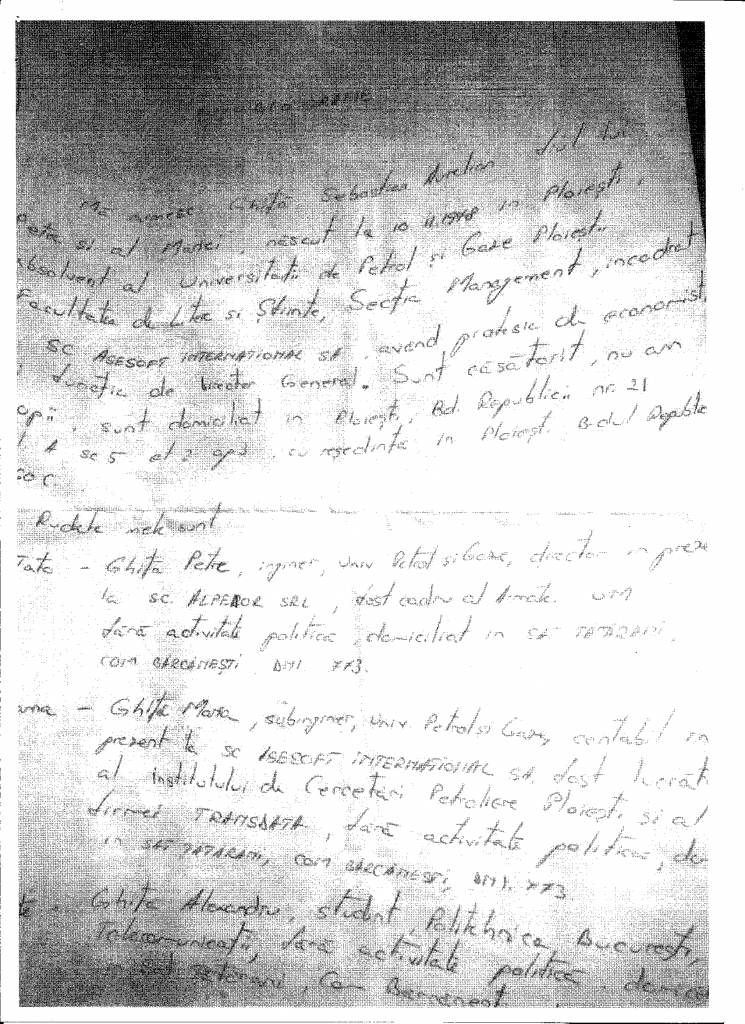 AUTOBIOGRAFIE
Mă numesc Ghiță Sebastian Aurelian fiul lui
Petre si al Mariei, născut la 10 11.1978 in Ploiești,
absolvent al Universitatii de Petrol și Gaze Ploiești
Facultatea de Litere si Științe, Secția Management, incadrat
SC ASESOFT INTERNATIONAL SA avend profesia de economist,
funcția de Director General. Sunt căsătorit, nu am
copii, sunt domiciliat in Ploiești, Bd. Republicii nr. 21
A sc 5 et 2 ap cu reședința in Ploiești B-dul Republic
C.
Rudele mele sunt
Tata - Ghiță Petre, inginer, Univ Petrol si Gaze, director in preze
la SC. ALPEROR SRL, fost cadru al Armate. UTM
fără activitate politică, domiciliat in SAT TATARANI,
COM BĂRCĂNEȘTI DN1. 773.
ama - Ghița Maria, subinginer, Univ. Petrol si Gaze, contabil in
prezent la SC ASESOFT INTERNATIONAL SA, fost lucrăt
al institutului de Cercetări Petroliere Ploiești si al
firmei TRANSDATA, fără activitate politică, do
in SAT TATARANI, COM BARCANESTI, DN1. 773
te - Ghița Alexandru, student, Politehnica București,
Telecomunicații, fără activitate politică, domici
in sat tatarani, Com Barcanest